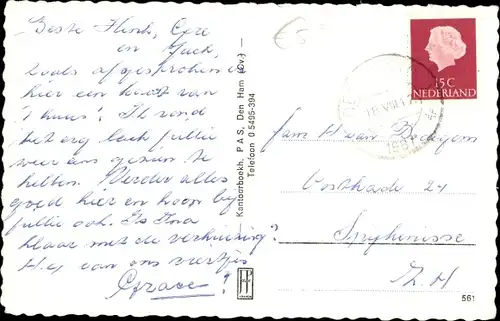 Beste Henk, Cize
en Jack,
Zoals afgesproken
hier een kaart van
't huis! Ik vond
het erg leuk jullie
weer eens gezien te
hebben. Verder alles
goed hier en hoop bij
jullie ook. Is Ina
klaar met de verhuizing?
Hoj van ons viertjes
Grace!
Kantoorboekh. P A S, Den Ham (Ov.) —
Telefoon 0 5495-394
15 C
NEDERLAND
Fam H van
Oosthade 24
Z.H
561